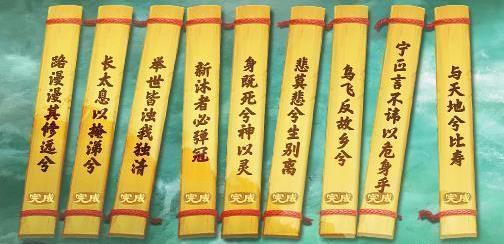 路漫漫其修远兮
完成
长太息以掩涕兮
完成
举世皆浊我独清
完成
新沐者必弹冠
身既死兮神以灵
悲莫悲兮生别离
鸟飞反故乡兮
完成
宁正言不讳以危身乎
完成
与天地兮比寿
完成